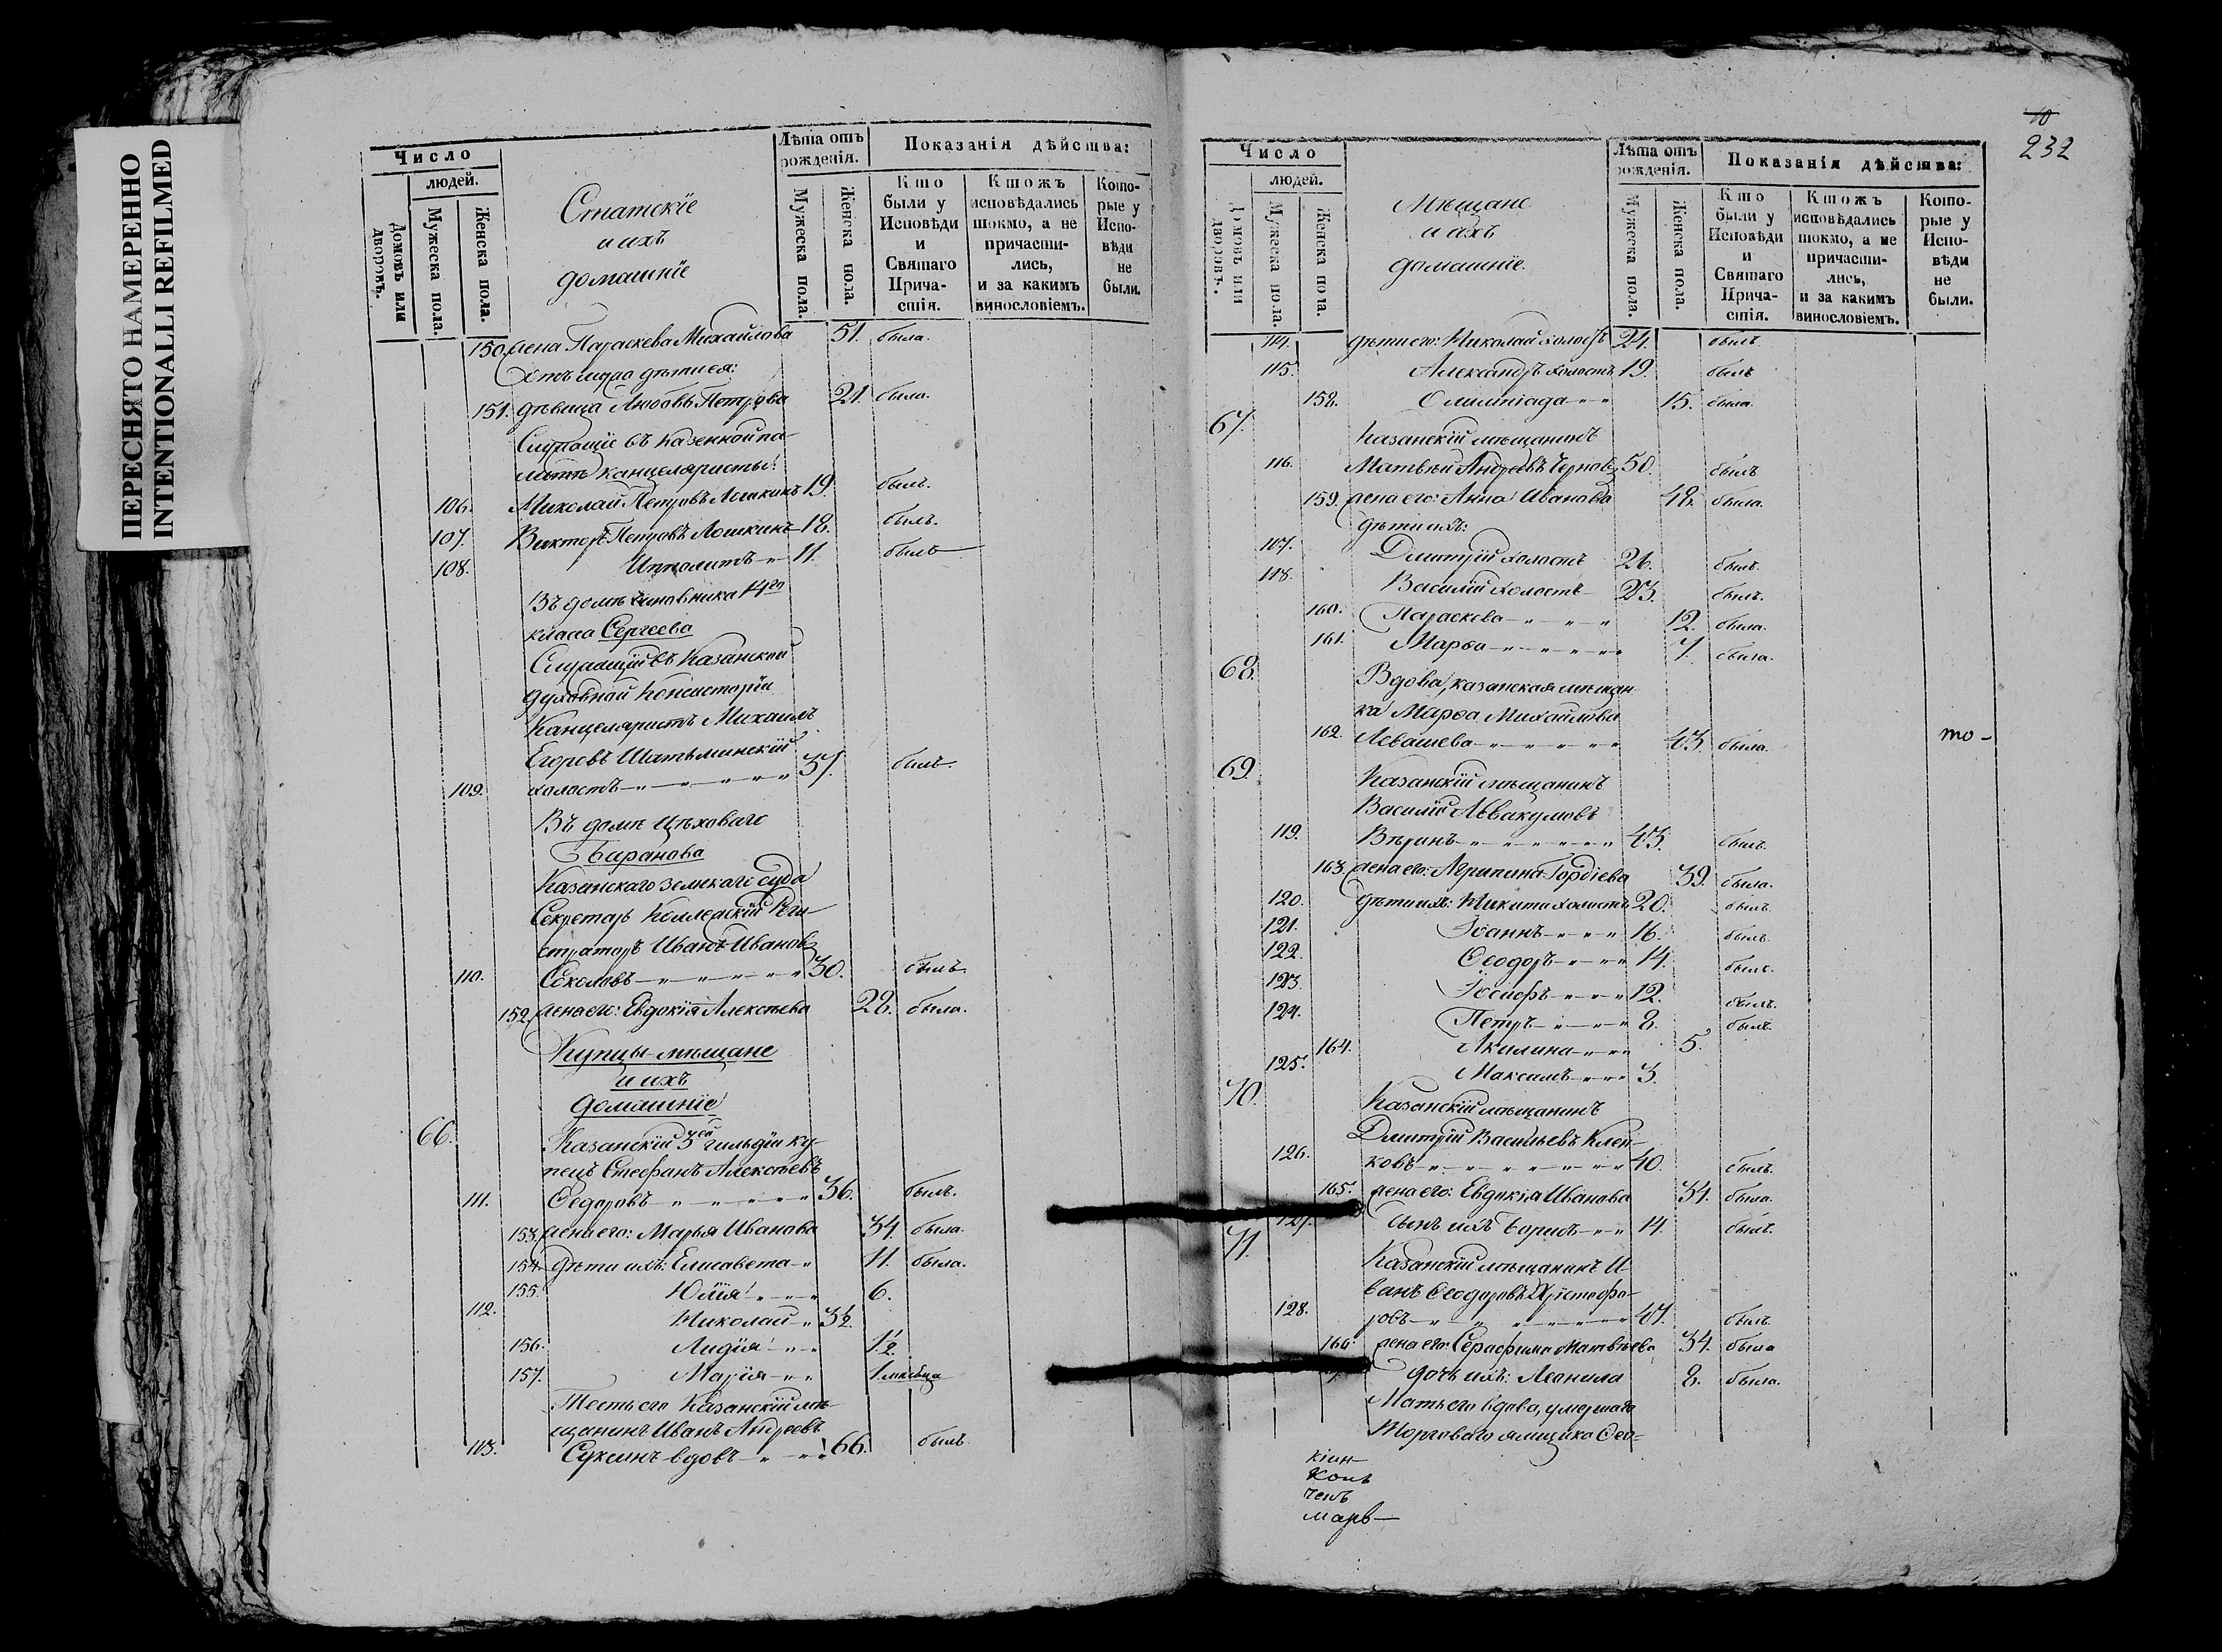 ПЕРЕСНЯТО НАМЕРЕННО
INTENTIONALLI REFILMED
Число
людей.
Домовъ или дворовъ.
Мужеска пола.
Женска пола.
Статскіе
и ихъ
домашніе
Лѣта отъ рожденія.
Мужеска пола.
Женска пола.
Показанія дѣйства:
Кто были у Исповѣди и Святаго Причастія.
Ктожъ исповѣдались токмо, а не причастились, и за какимъ винословіемъ.
Которые у Исповѣди не были.
150. жена Параскева Михайлова 51. была.
дѣти ея:
151. дѣвица Любовь Петрова 21. была.
Служащіе въ казенной па-
латѣ канцеляристы:
106. Николай Петровъ Лошкинъ 19. былъ.
107. Викторъ Петровъ Лошкинъ 18. былъ.
108. Ипполитъ 11. былъ
Въ домѣ чиновника 14го
класа Сергеева
Служащій въ Казанской
духовной Консисторіи
Канцеляристъ Михаилъ
Егоровъ Шатьминскій
109. холостъ 37. былъ.
Въ домѣ Цѣховаго
Баранова
Казанскаго земскаго суда
Секретарь Коллежскій Реги-
страторъ Иванъ Ивановъ
110. Соколовъ 30. былъ
152. жена его: Евдокія Алексѣева 28. была.
Купцы мѣщане
и ихъ
домашніе
66. Казанскій 3ей гильдіи ку-
пецъ Стефанъ Алексѣевъ
111. Ѳедоровъ 36. былъ.
153. жена его: Марья Иванова 34. была.
154. дѣти ихъ: Елисавета 11. была.
155. Юлія 6.
112. Николай 3½
156. Лидія 1½
157. Марія 1 мѣсяца
Тесть его Казанскій мѣ-
щанинъ Иванъ Андреевъ
113. Суксинъ вдовъ 66. былъ
10
232
Число
людей.
Домовъ или дворовъ.
Мужеска пола.
Женска пола.
Мѣщане
и ихъ
домашніе.
Лѣта отъ рожденія.
Мужеска пола.
Женска пола.
Показанія дѣйства:
Кто были у Исповѣди и Святаго Причастія.
Ктожъ исповѣдались токмо, а не причастились, и за какимъ винословіемъ.
Которые у Исповѣди не были.
114. дѣти его: Николай холостъ 24. былъ.
115. Александръ холостъ 19. былъ
158. Олимпіада 15. была.
67. Казанскій мѣщанинъ
116. Матвѣй Андреевъ Черновъ 50. былъ
159. жена его: Анна Иванова 48. была.
дѣти ихъ:
117. Дмитрій холостъ 26. былъ.
118. Василій холостъ 23. былъ.
160. Параскева 12. была.
161. Марѳа 7. была.
68. Вдова, казанская мѣщан-
ка Марѳа Михайлова
162. Левашева 43. была. то-
69. Казанскій мѣщанинъ
Василій Аввакумовъ
119. Вѣринъ 43. былъ.
163. жена его: Агрипина Гордіева 39. была.
120. дѣти ихъ: Никита холостъ 20. былъ
121. Іоаннъ 16. былъ.
122. Ѳеодоръ 14. былъ.
123. Іосифъ 12. былъ.
124. Петръ 8. былъ.
164. Акилина 5.
125. Максимъ 3.
70. Казанскій мѣщанинъ
Дмитрій Васильевъ Клей-
126. ковъ 40. былъ.
165. жена его: Евдокія Иванова 34. была.
127. Сынъ ихъ Борисъ 14. былъ.
71. Казанскій мѣщанинъ И-
ванъ Ѳеодоровъ Христофо-
128. ровъ 47. былъ.
166. жена его: Серафима Матвѣева 34. была
дочь ихъ: Леонила 8. была.
Мать его вдова, умершаго
Торговаго ямщика Ѳео-